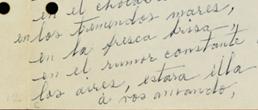 en el chocar
en los tremendos mares,
en la fresca brisa y
en el rumor constante
los aires, estara ella
a vos mirando,